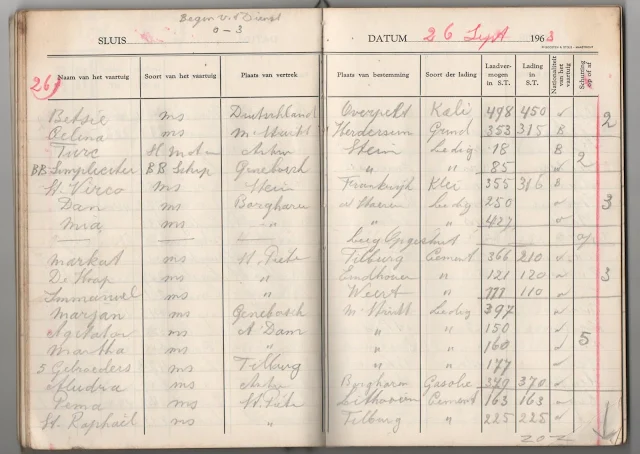 Begin v.d Dienst
0-3
SLUIS DATUM 26 Sept 1963
26/ Naam van het vaartuig Soort van het vaartuig Plaats van vertrek Plaats van bestemming Soort der lading Laadvermogen in S.T. Lading in S.T. Nationaliteit van het vaartuig Schutting op of af
Betsie ms Duitschland Overpelt Kali 498 450 N 2
Celina ms M Grind 353 315 B
Turc St motor Stein Ledig 18 B
BB BB Schip " " 85 N 2
St. Virco ms Stein Frankrijk Klei 355 316 B
Dan ms Borgharen Ledig 250 N 3
Mia ms " " " 427 N
Leeg Opgeschut op
Markat ms St. Piete Tilburg Cement 366 210 N
De Hoop ms " Eindhoven " 121 120 N 3
Immanuel ms " Weert " 111 110 N
Marjan ms Ledig 397 N
Agitator ms A Dam " " 150 N
Martha ms " " " 160 N 5
5 Gebroeders ms Tilburg " " 177 N
Aludra ms Borgharen Gasolie 379 370 N
Pema ms St. Piete Cement 163 163 N
St. Raphaël ms " Tilburg " 225 225 N
207